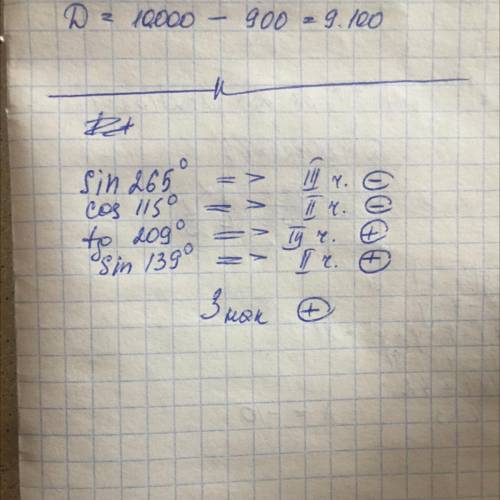 D = 10000 - 900 = 9.100
sin 265° => III ч. ⊖
cos 115° => II ч. ⊖
tg 209° => III ч. ⊕
sin 139° => II ч. ⊕
Знак ⊕